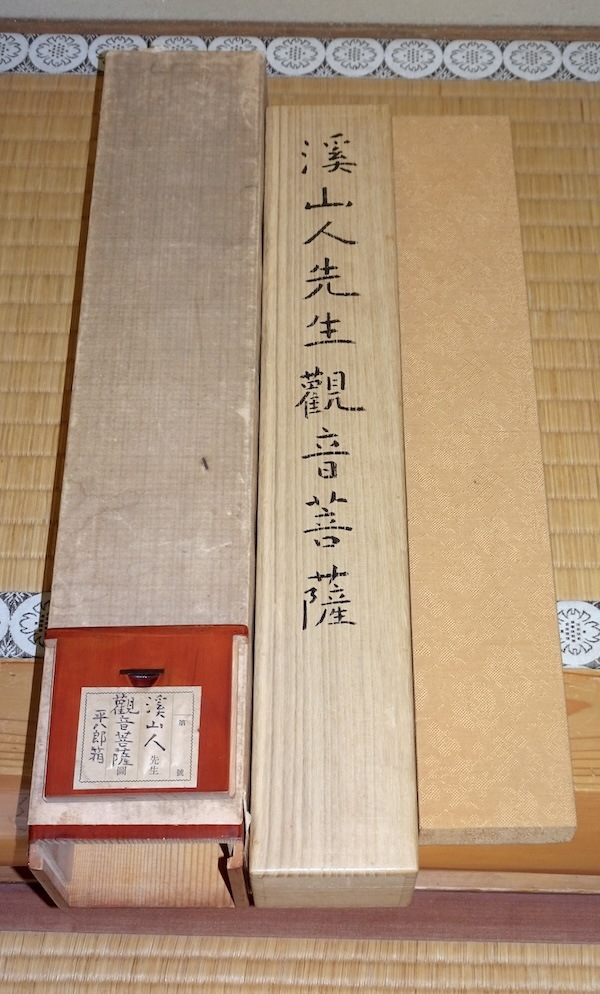 溪山人先生觀音菩薩
第 號
溪山人先生
觀音菩薩圖
平八郎箱